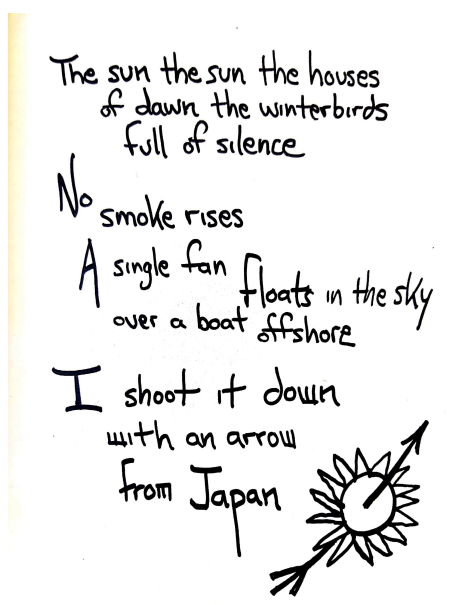 The sun the sun the houses
of dawn the winterbirds
full of silence
No
smoke rises
A single fan floats in the sky
over a boat offshore
I shoot it down
with an arrow
from Japan